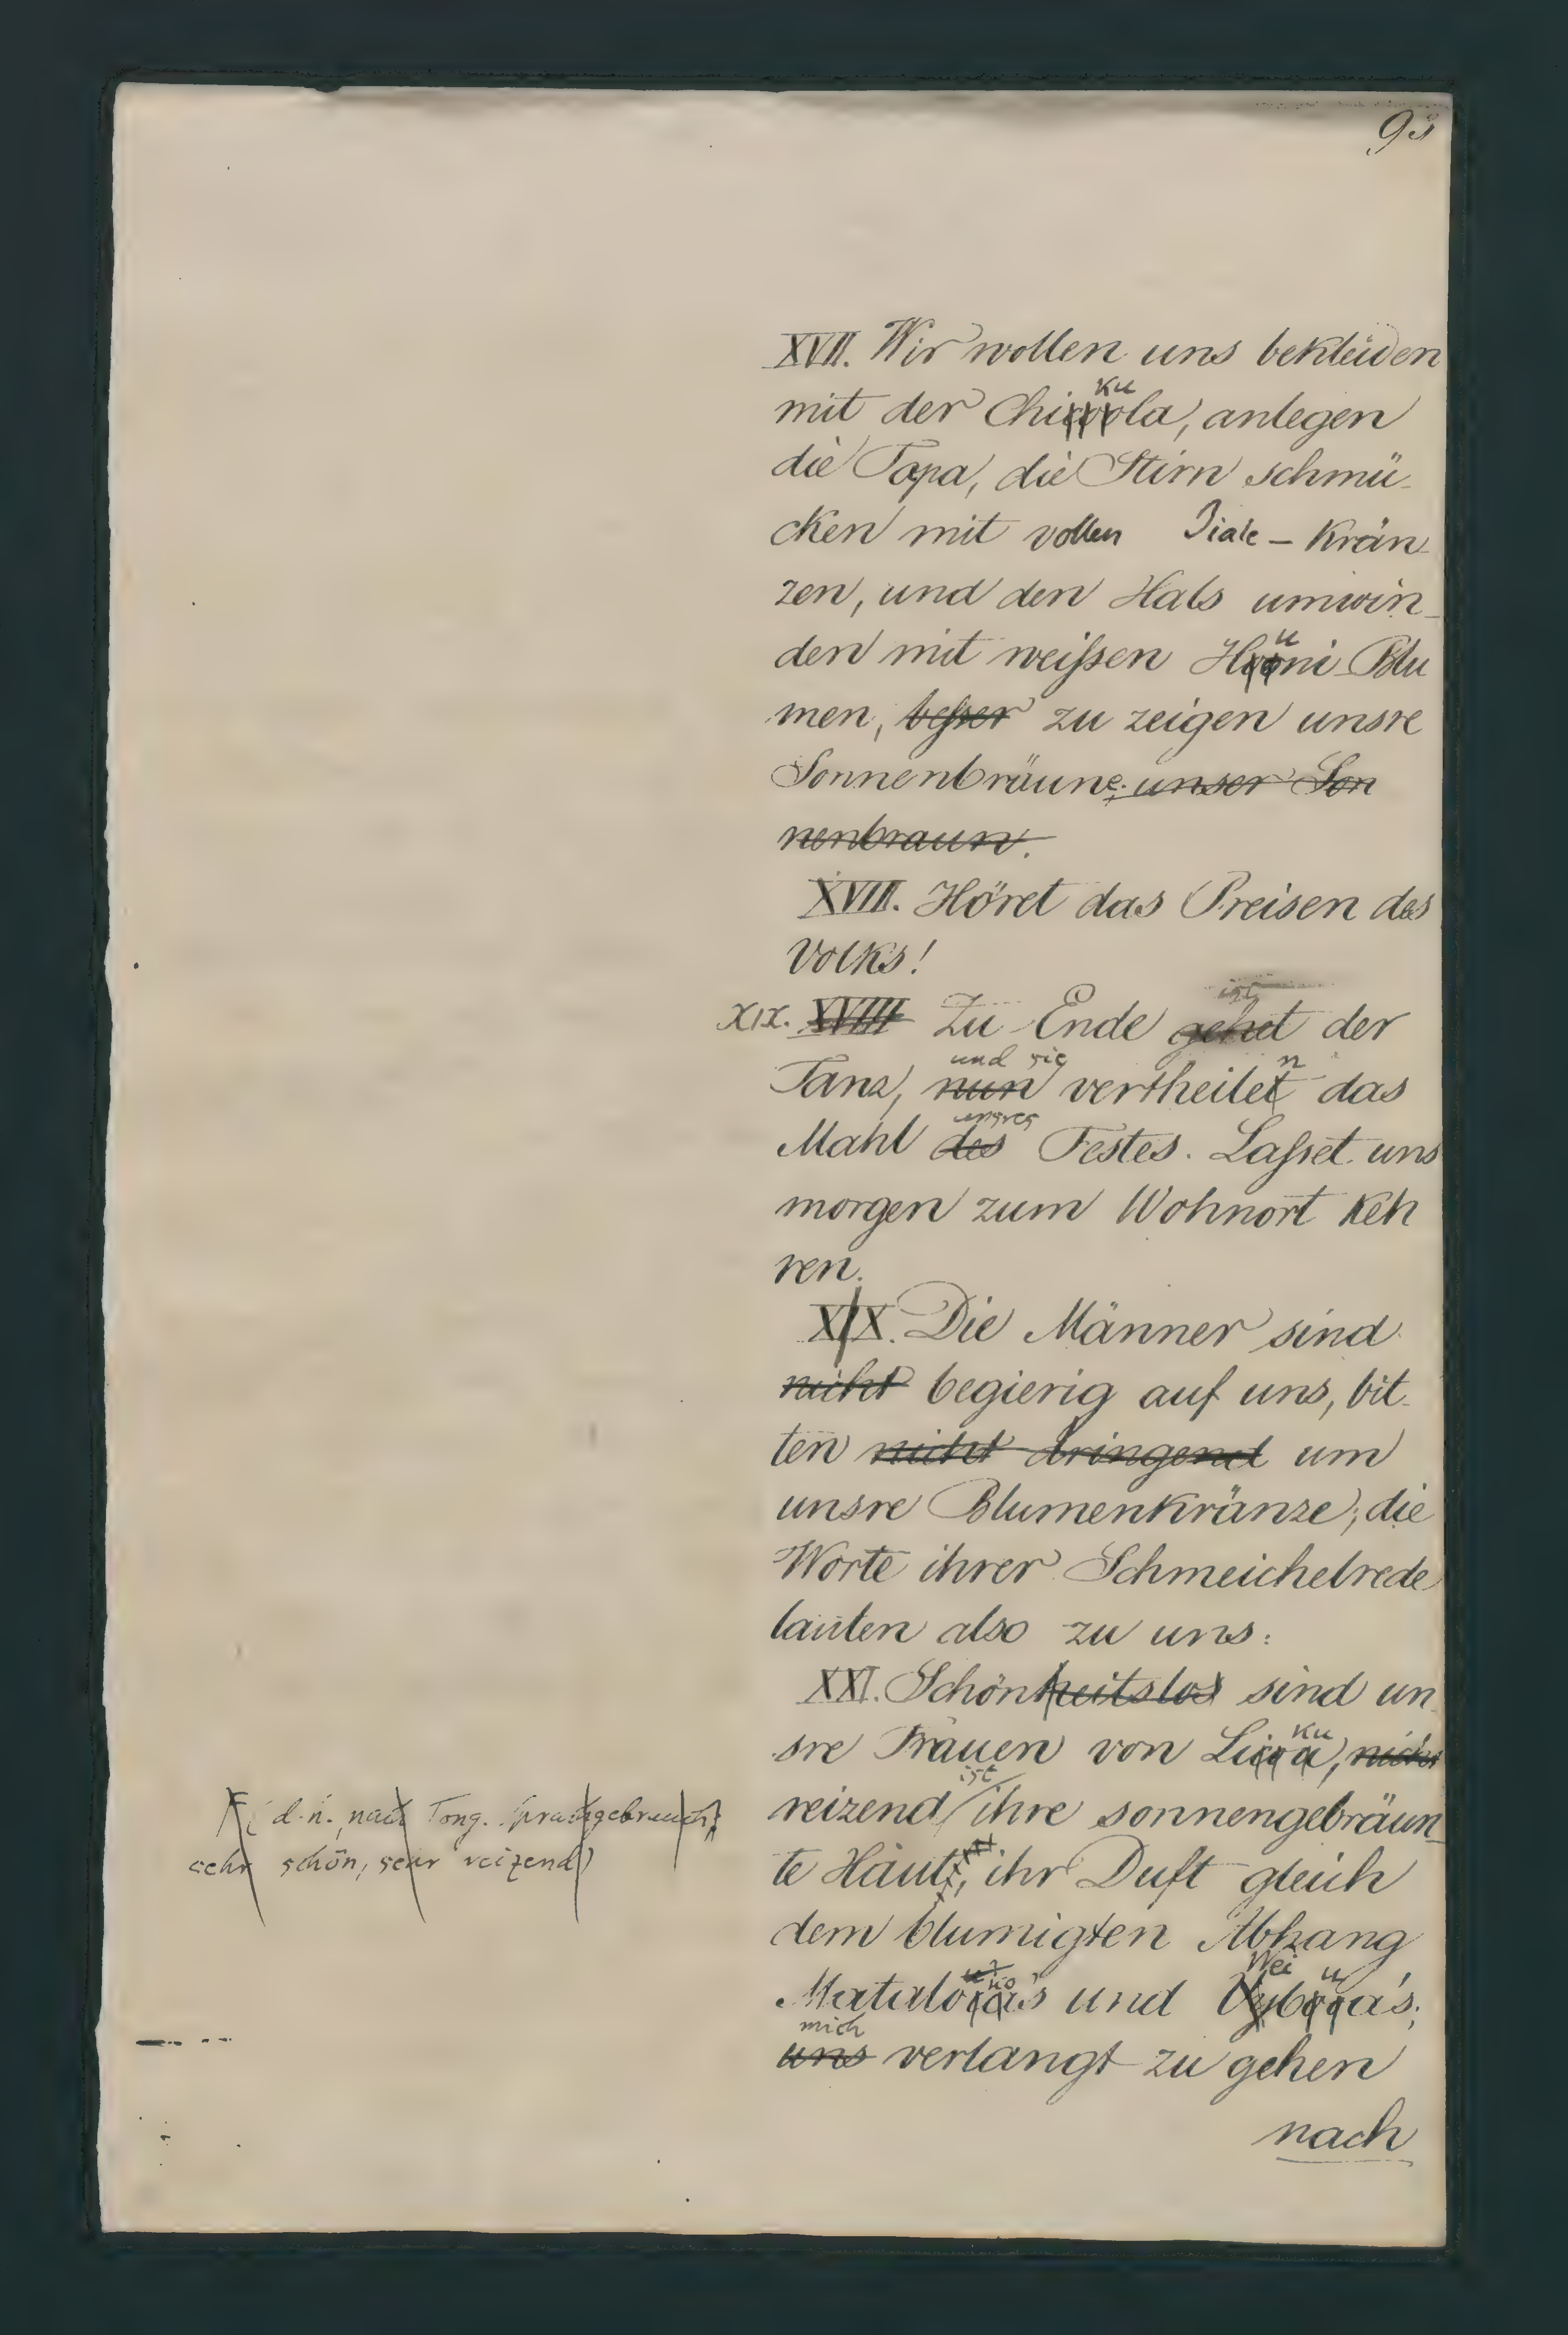 93
XVII. Wir wollen uns bekleiden
ku
mit der Chicoola, anlegen
die Tapa, die Stirn schmü-
cken mit vollen Jiale - Krän-
zen, und den Hals umwin-
u
den mit weissen Hooni-Blu
men, besser zu zeigen unsre
Sonnenbräune; unser Son
nenbraun.
XVIII. Höret das Preisen des
Volks!
ist
XIX. XVIIII Zu Ende gehet der
und sie n
Tanz, nun vertheilet das
unsres
Mahl des Festes. Lasset uns
morgen zum Wohnort keh
ren.
XIX. Die Männer sind
nicht begierig auf uns, bit-
ten nicht dringend um
unsre Blumenkränze; die
Worte ihrer Schmeichelrede
lauten also zu uns:
XXI. Schönheitslos sind un-
ku
sre Frauen von Licoa, nicht
ist
reizend ihre sonnengebräun-
te Haut, ihr Duft gleich
dem blumigten Abhang
Wei u
Mataloco's und Vybooa's;
mich
uns verlangt zu gehen
nach
(d.h. nach Tong. Sprachgebrauch,
sehr schön, sehr reizend)